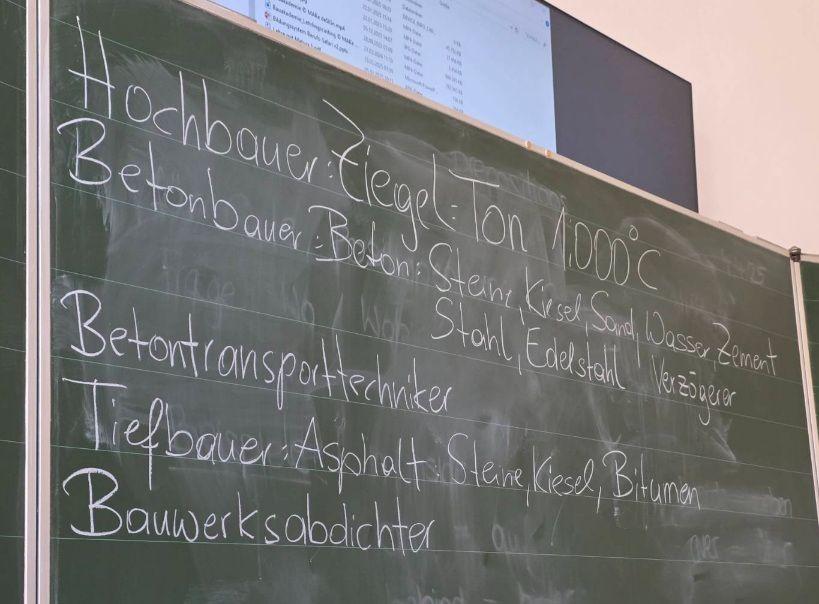 Hochbauer: Ziegel: Ton 1.000°C
Betonbauer: Beton: Steine, Kiesel, Sand, Wasser, Zement
Stahl, Edelstahl Verzögerer
Betontransporttechniker
Tiefbauer: Asphalt: Steine, Kiesel, Bitumen
Bauwerksabdichter